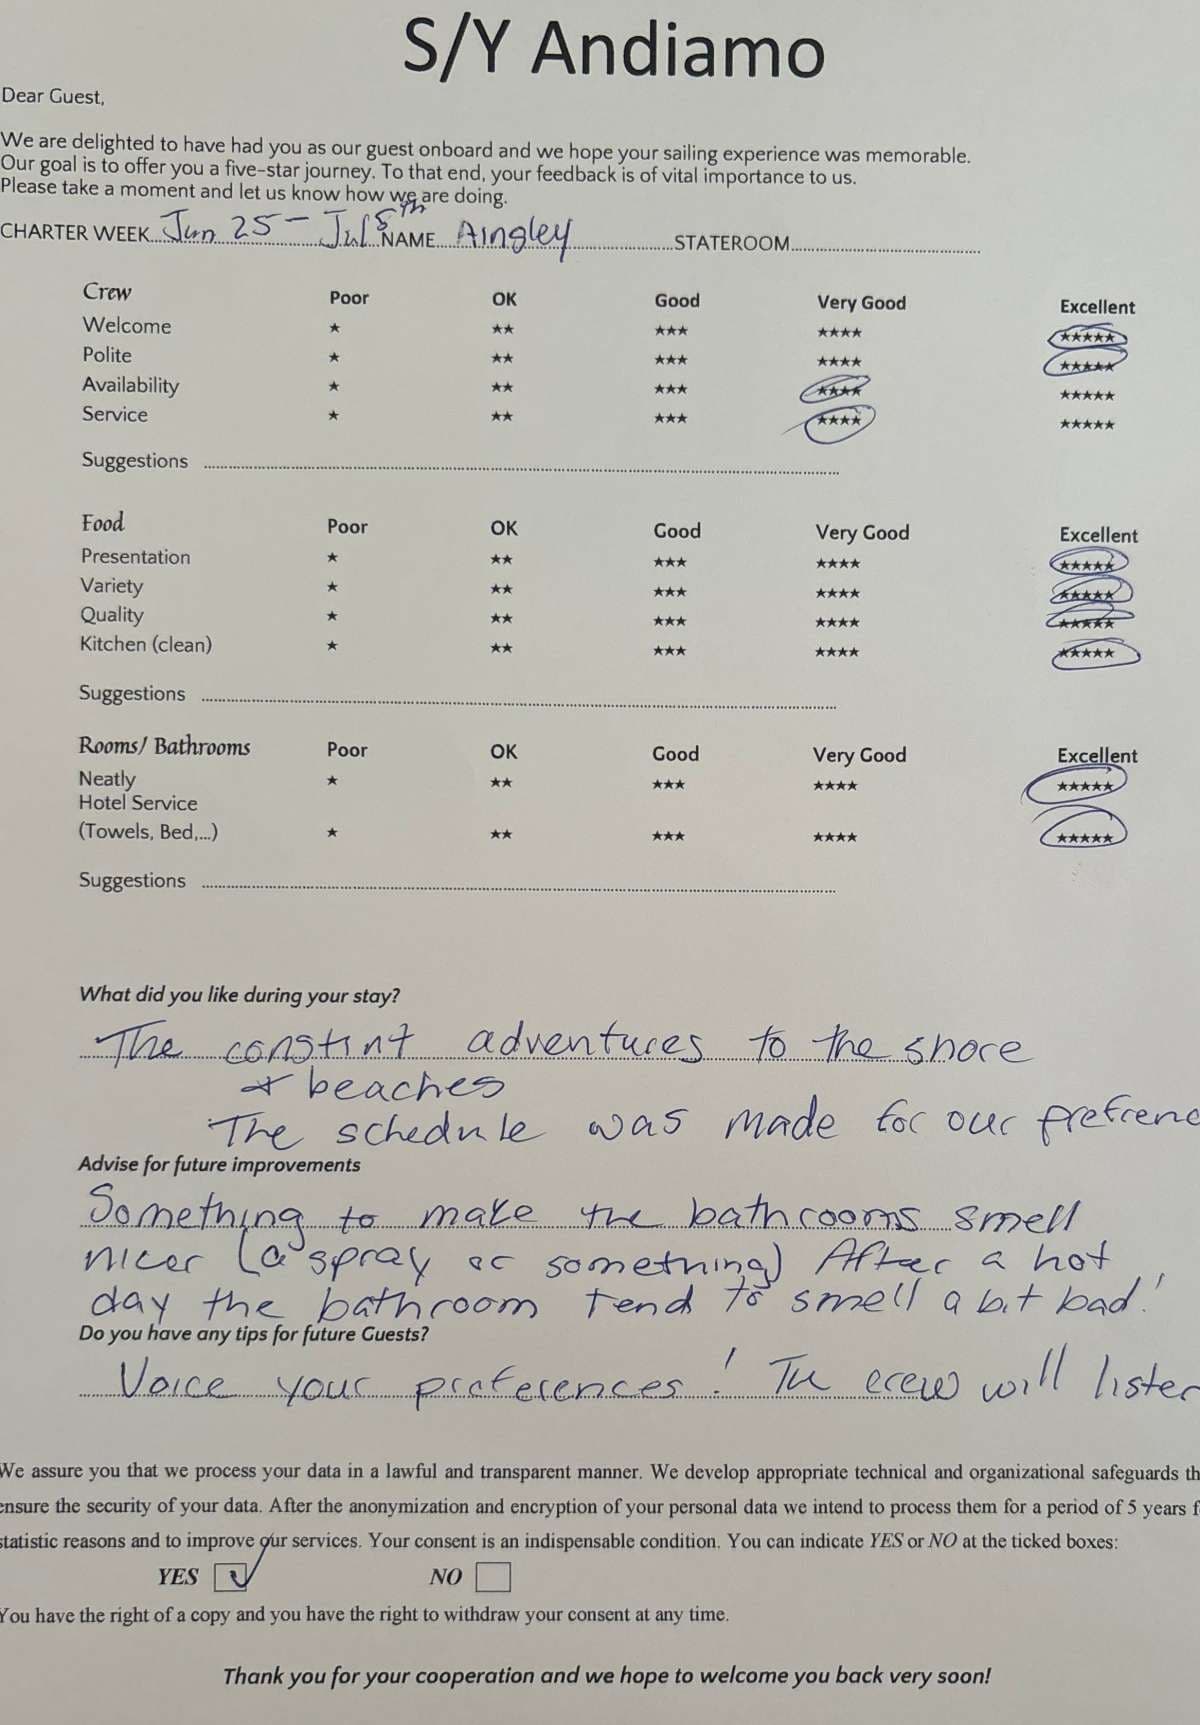 S/Y Andiamo
Dear Guest,
We are delighted to have had you as our guest onboard and we hope your sailing experience was memorable.
Our goal is to offer you a five-star journey. To that end, your feedback is of vital importance to us.
Please take a moment and let us know how we are doing.
CHARTER WEEK Jun 25 - Jul 5th NAME Aingley STATEROOM
Crew Poor OK Good Very Good Excellent
Welcome ★ ★★ ★★★ ★★★★ ★★★★★
Polite ★ ★★ ★★★ ★★★★ ★★★★★
Availability ★ ★★ ★★★ ★★★★ ★★★★★
Service ★ ★★ ★★★ ★★★★ ★★★★★
Suggestions
Food Poor OK Good Very Good Excellent
Presentation ★ ★★ ★★★ ★★★★ ★★★★★
Variety ★ ★★ ★★★ ★★★★ ★★★★★
Quality ★ ★★ ★★★ ★★★★ ★★★★★
Kitchen (clean) ★ ★★ ★★★ ★★★★ ★★★★★
Suggestions
Rooms/ Bathrooms Poor OK Good Very Good Excellent
Neatly ★ ★★ ★★★ ★★★★ ★★★★★
Hotel Service
(Towels, Bed,...) ★ ★★ ★★★ ★★★★ ★★★★★
Suggestions
What did you like during your stay?
The constint adventures to the shore
+ beaches
The schedule was made for our prefrenc
Advise for future improvements
Something to make the bathrooms smell
nicer (a spray or something) After a hot
day the bathroom tend to smell a bit bad!
Do you have any tips for future Guests?
Voice your preferences! The crew will listen
We assure you that we process your data in a lawful and transparent manner. We develop appropriate technical and organizational safeguards th
ensure the security of your data. After the anonymization and encryption of your personal data we intend to process them for a period of 5 years f
statistic reasons and to improve our services. Your consent is an indispensable condition. You can indicate YES or NO at the ticked boxes:
YES NO
You have the right of a copy and you have the right to withdraw your consent at any time.
Thank you for your cooperation and we hope to welcome you back very soon!